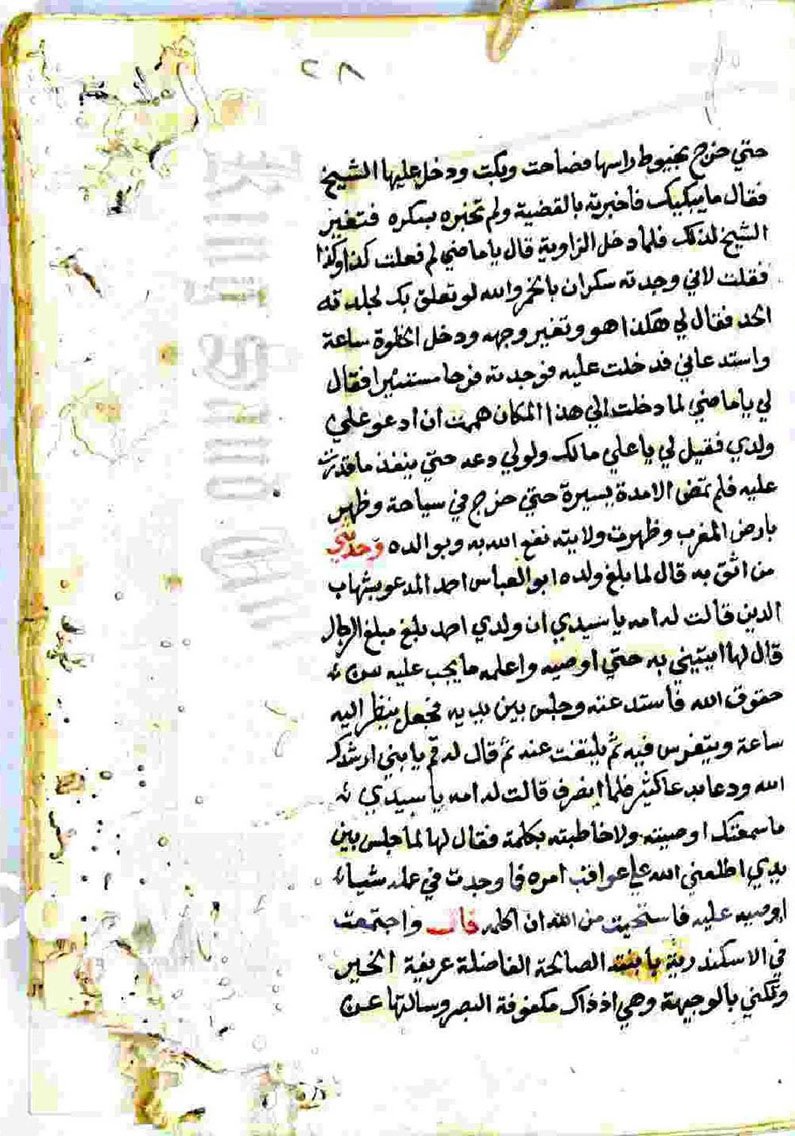 ٢٨
حتي خرج بخيوط راسها فصاحت وبكت ودخل عليها الشيخ
فقال ما يبكيك فاخبرته بالقضية ولم تخبره بسكره فتغير
الشيخ لذلك فلما دخل الزاوية قال يا ماضي لم فعلت كذا وكذا
فقلت لاني وجدته سكران بالخمر والله لو تعلق بك لجلدته
الحد فقال لي هكذا هو وتغير وجهه ودخل الخلوة ساعة
واستدعاني فدخلت عليه فوجدته فرحا مستنيرا فقال
لي يا ماضي لما دخلت الي هذا المكان هممت ان ادعو علي
ولدي فقيل لي يا علي مالك ولولي دعه حتي ينفذ ما قدرت
عليه فلم تمض الا مدة يسيرة حتي خرج في سياحة وظهر
بارض المغرب وظهرت ولايته نفع الله به وبوالده وحدثني
من اثق به قال لما بلغ ولده ابو العباس احمد المدعو بشهاب
الدين قالت له امه يا سيدي ان ولدي احمد بلغ مبلغ الرجال
قال لها ايتيني به حتي اوصيه واعلمه ما يجب عليه من
حقوق الله فاستدعته وجلس بين يديه فجعل ينظر اليه
ساعة ويتفرس فيه ثم يلتفت عنه ثم قال له قم يا بني ارشدك
الله ودعا له دعا كثير فلما انصرف قالت له امه يا سيدي
ما سمعتك اوصيته ولا خاطبته بكلمة فقال لها لما جلس بين
يدي اطلعني الله علي عواقب امره فما وجدت في عمله شيا
اوصيه عليه فاستحيت من الله ان اكلمه قال واجتمعت
في الاسكندرية بابنته الصالحة الفاضلة عريفة الخير
وتكني بالوجيهة وهي اذ ذاك مكفوفة البصر وسالتها عن